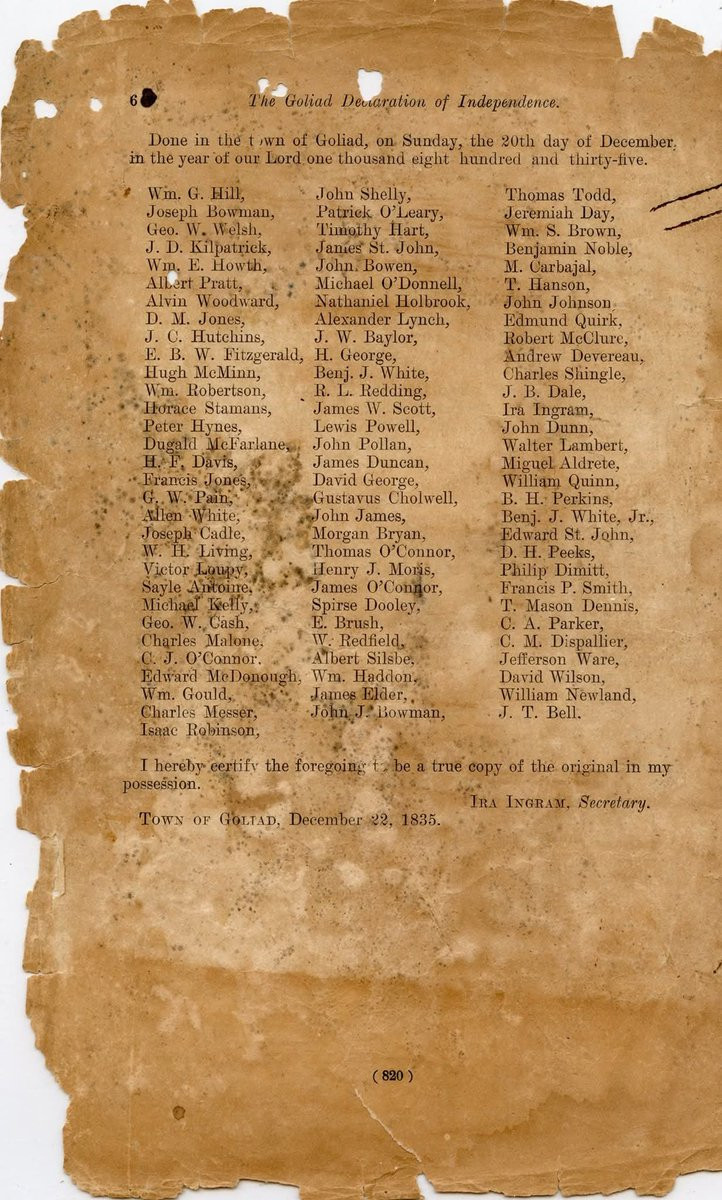 6
The Goliad Declaration of Independence.
Done in the town of Goliad, on Sunday, the 20th day of December,
in the year of our Lord one thousand eight hundred and thirty-five.
Wm. G. Hill,
Joseph Bowman,
Geo. W. Welsh,
J. D. Kilpatrick,
Wm. E. Howth,
Albert Pratt,
Alvin Woodward,
D. M. Jones,
J. C. Hutchins,
E. B. W. Fitzgerald,
Hugh McMinn,
Wm. Robertson,
Horace Stamans,
Peter Hynes,
Dugald McFarlane,
H. F. Davis,
Francis Jones,
G. W. Pain,
Allen White,
Joseph Cadle,
W. H. Living,
Victor Loupy,
Sayle Antoine,
Michael Kelly,
Geo. W. Cash,
Charles Malone,
C. J. O'Connor.
Edward McDonough,
Wm. Gould,
Charles Messer,
Isaac Robinson,
John Shelly,
Patrick O'Leary,
Timothy Hart,
James St. John,
John Bowen,
Michael O'Donnell,
Nathaniel Holbrook,
Alexander Lynch,
J. W. Baylor,
H. George,
Benj. J. White,
R. L. Redding,
James W. Scott,
Lewis Powell,
John Pollan,
James Duncan,
David George,
Gustavus Cholwell,
John James,
Morgan Bryan,
Thomas O'Connor,
Henry J. Moris,
James O'Connor,
Spirse Dooley,
E. Brush,
W. Redfield,
Albert Silsbe,
Wm. Haddon,
James Elder,
John J. Bowman,
Thomas Todd,
Jeremiah Day,
Wm. S. Brown,
Benjamin Noble,
M. Carbajal,
T. Hanson,
John Johnson
Edmund Quirk,
Robert McClure,
Andrew Devereau,
Charles Shingle,
J. B. Dale,
Ira Ingram,
John Dunn,
Walter Lambert,
Miguel Aldrete,
William Quinn,
B. H. Perkins,
Benj. J. White, Jr.,
Edward St. John,
D. H. Peeks,
Philip Dimitt,
Francis P. Smith,
T. Mason Dennis,
C. A. Parker,
C. M. Dispallier,
Jefferson Ware,
David Wilson,
William Newland,
J. T. Bell.
I hereby certify the foregoing to be a true copy of the original in my
possession.
Ira Ingram, Secretary.
Town of Goliad, December 22, 1835.
(820)